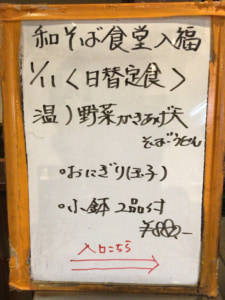 和そば食堂入福
1/11〈日替定食〉
温)野菜かきあげ天
そばorうどん
◦おにぎり(玉子)
◦小鉢2品付
¥880-
入口こちら